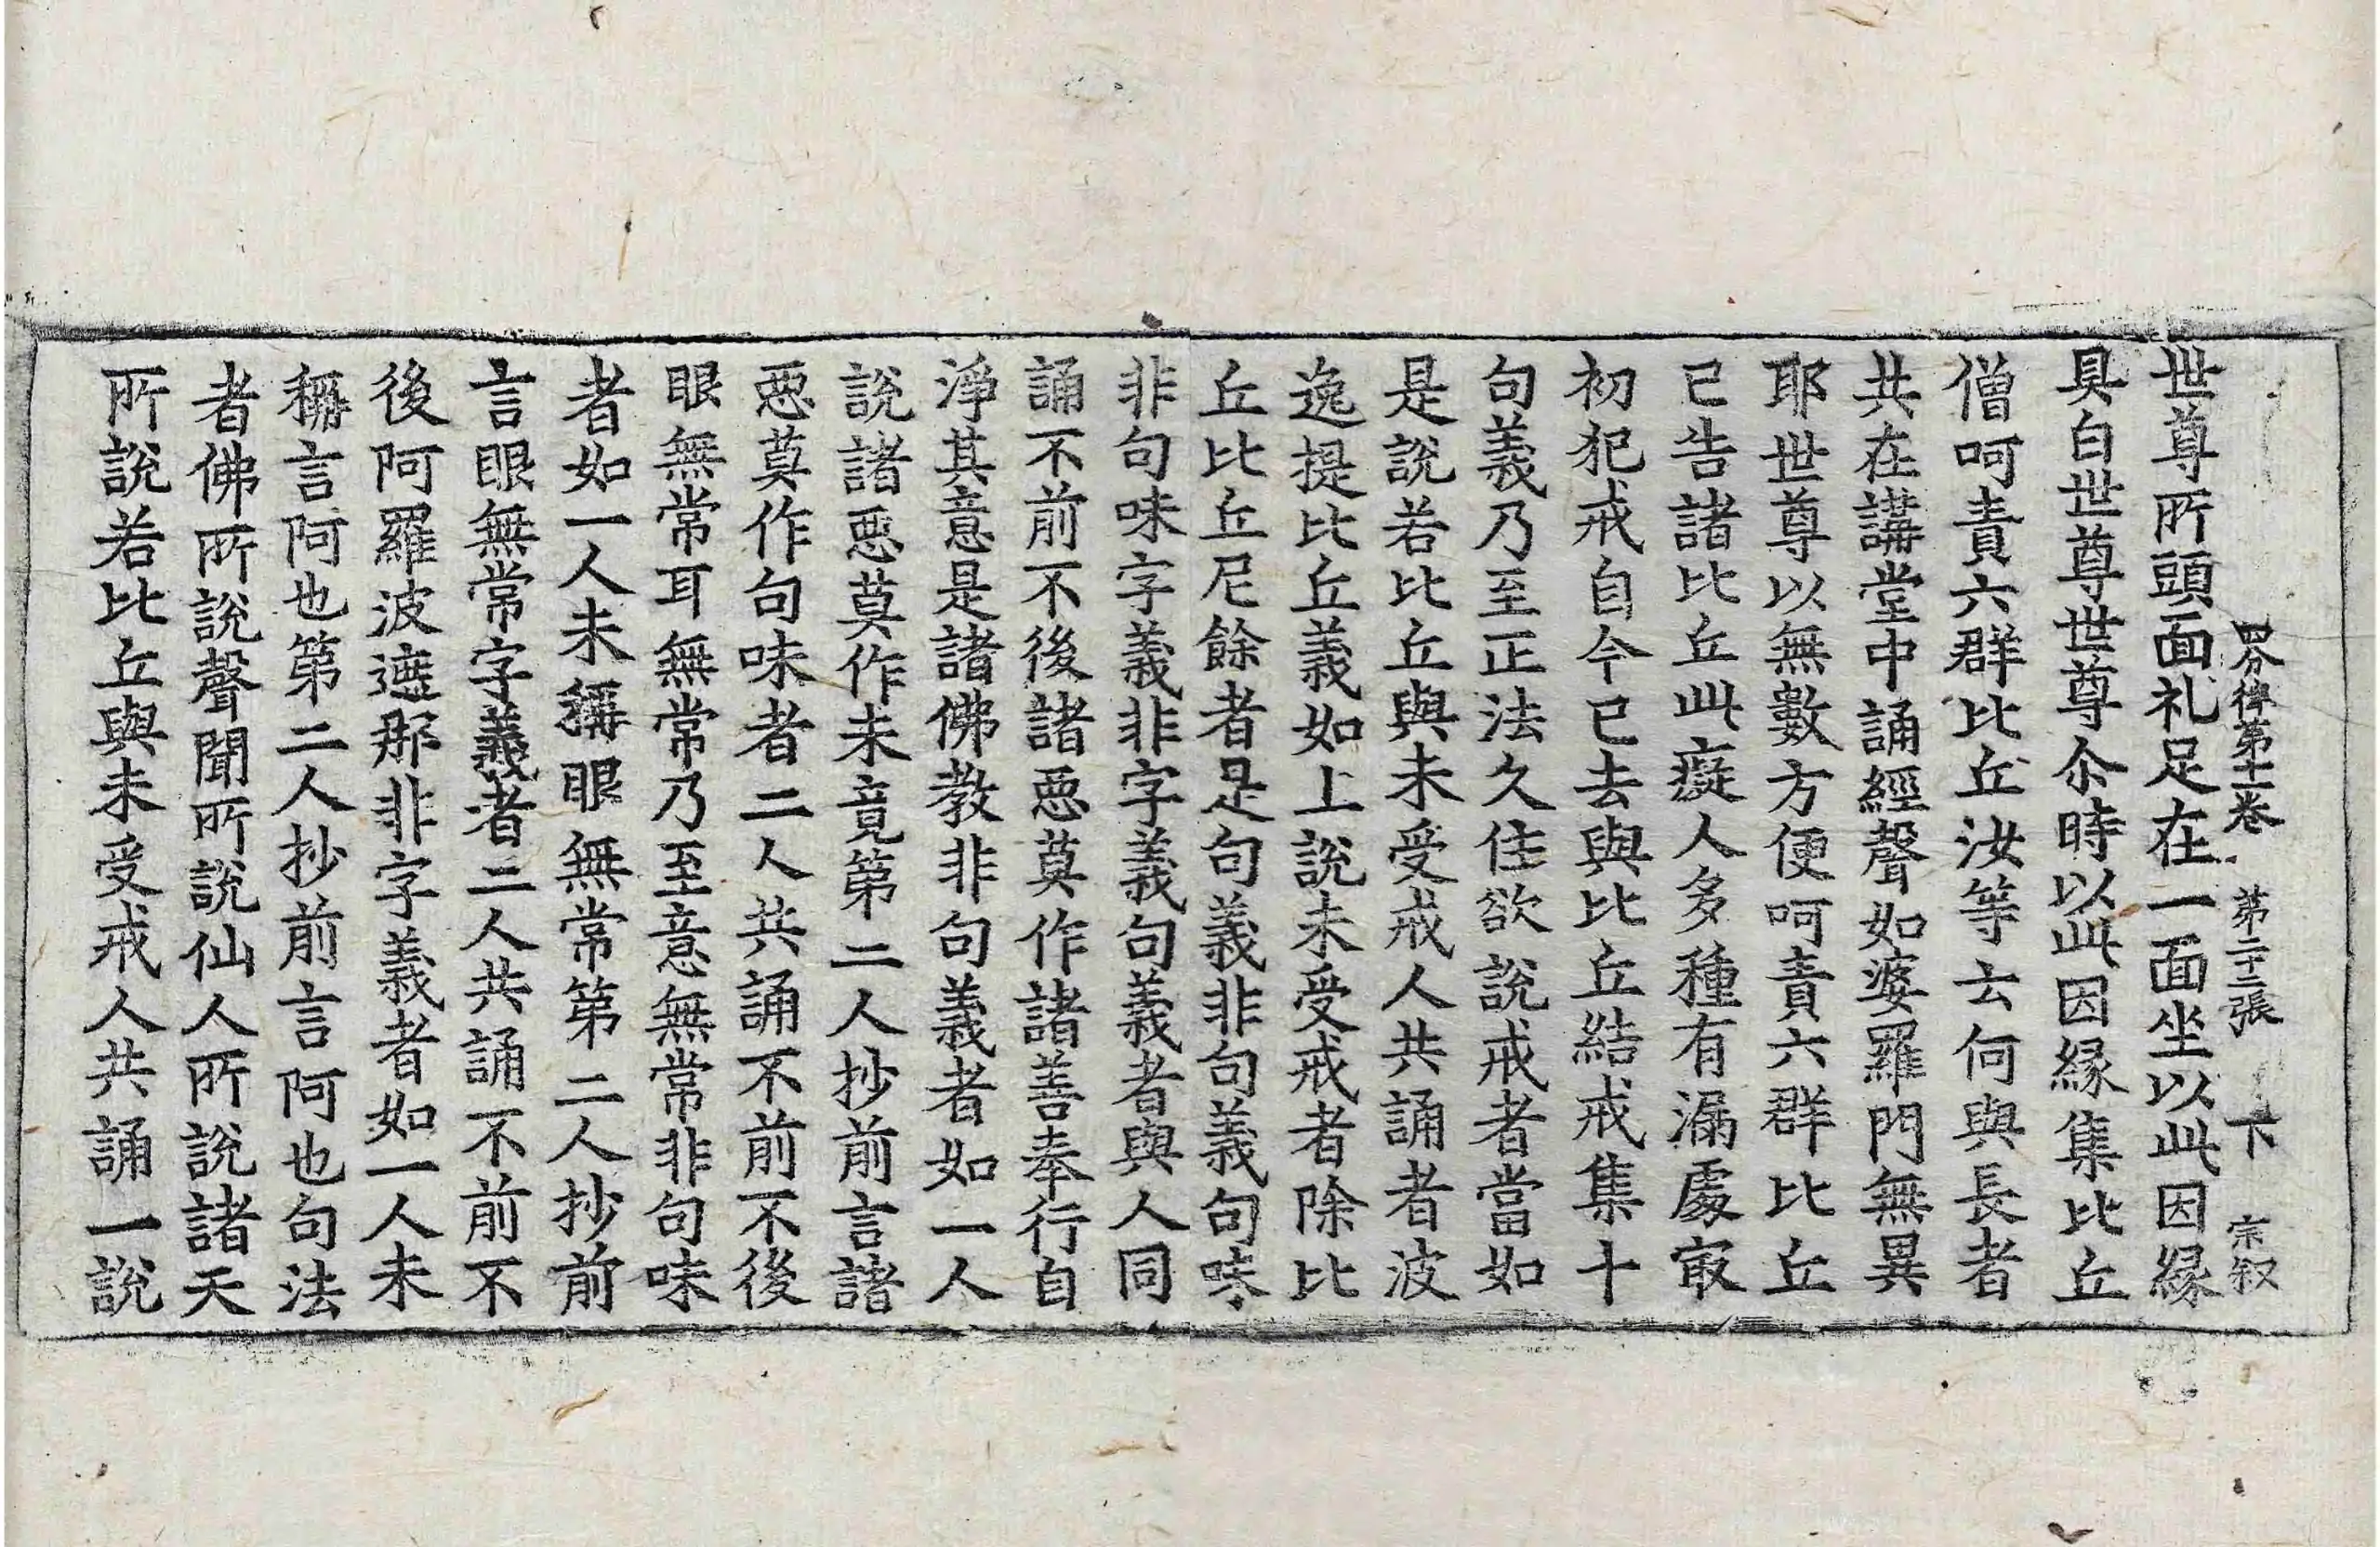 四分律第十一卷 第二十三張 下 宗叙
世尊所頭面礼足在一面坐以此因緣
具白世尊世尊尒時以此因緣集比丘
僧呵責六群比丘汝等云何與長者
共在講堂中誦經聲如婆羅門無異
耶世尊以無數方便呵責六群比丘
已告諸比丘此癡人多種有漏處㝡
初犯戒自今已去與比丘結戒集十
句義乃至正法久住欲說戒者當如
是說若比丘與未受戒人共誦者波
逸提比丘義如上說未受戒者除比
丘比丘尼餘者是句義非句義句味
非句味字義非字義句義者與人同
誦不前不後諸惡莫作諸善奉行自
淨其意是諸佛教非句義者如一人
說諸惡莫作未竟第二人抄前言諸
惡莫作句味者二人共誦不前不後
眼無常耳無常乃至意無常非句味
者如一人未稱眼無常第二人抄前
言眼無常字義者二人共誦不前不
後阿羅波遮那非字義者如一人未
稱言阿也第二人抄前言阿也句法
者佛所說聲聞所說仙人所說諸天
所說若比丘與未受戒人共誦一說